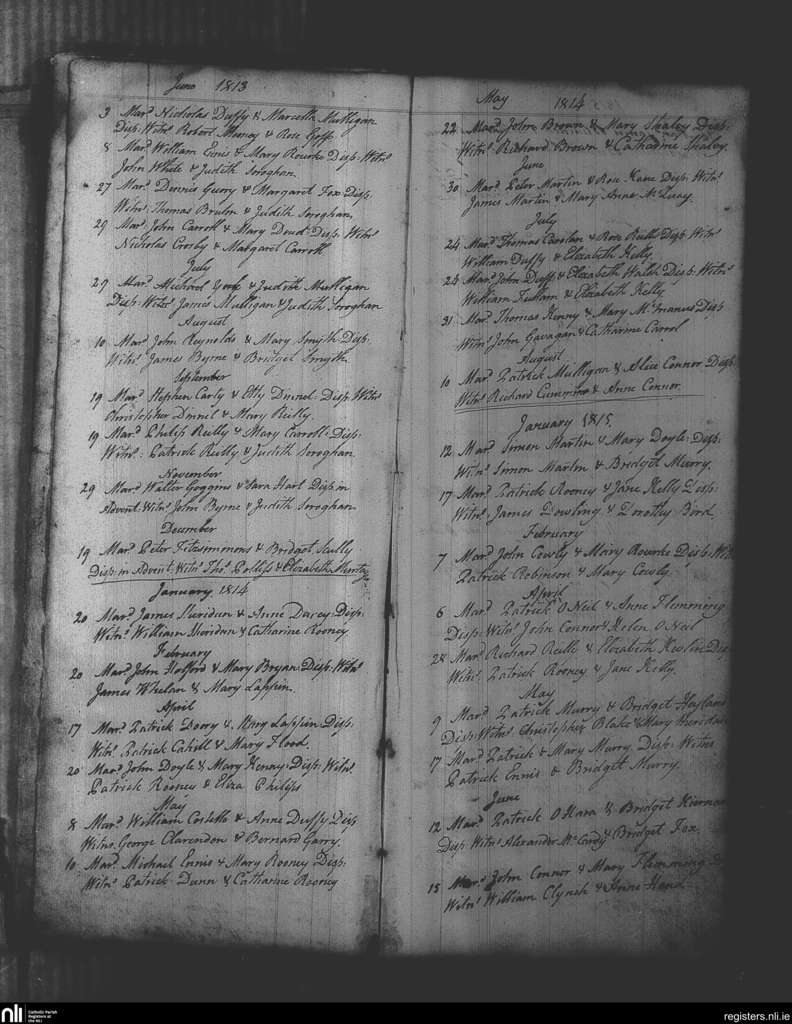 June 1813
3 Mard Nicholas Duffy & Marcella Mulligan
Disp: Witns Robert Money & Rose Goff
8 Mard William Ennis & Mary Rourke Disp: Witns
John White & Judith Soroghan.
27 Mard Dennis Geory & Margaret Fox Disp:
Witns: Thomas & Judith Soroghan
29 Mard John Carroll & Mary Doud Disp: Witns
Nicholas Crosby & Margaret Carroll
July
29 Mard Michael & Judith Mulligan
Disp: Witns James Mulligan & Judith Soroghan
August
10 Mard John Reynolds & Mary Smyth Disp:
Witns James Byrne & Bridget Smyth.
September
19 Mard Stephen Carly & Etty Disp: Witns
Christopher & Mary Reilly.
19 Mard Philip Reilly & Mary Carroll: Disp:
Witns: Patrick Reilly & Judith Soroghan
November
29 Mard Walter Goggins & Sara Hart Disp: in
Advent: Witns John Byrne & Judith Soroghan
December
19 Mard Peter Fitzsimmons & Bridget Scully
Disp: in Advent. Witns Thos. & Elizabeth
January 1814
20 Mard James Sheridan & Anne Darcy: Disp:
Witns William Sheridan & Catharine Rooney
February
20 Mard John Hofford & Mary Bryan: Disp: Witns
James Whelan & Mary Lappin.
April
17 Mard Patrick Derry & Mary Lappin: Disp:
Witns Patrick Cahill & Mary Flood.
20 Mard John Doyle & Mary Henry: Disp: Witns
Patrick Rooney & Eliza Philips
May
8 Mard William Costello & Anne Duffy Disp
Witns George Clarendon & Bernard Garry.
10 Mard Michael Ennis & Mary Rooney Disp:
Witns Patrick Dunn & Catharine Rooney
May 1814
22 Mard John Brown & Mary Shaley Disp:
Witns Richard Brown & Catharine Shaley.
June
30 Mard Peter Martin & Rose Kane Disp: Witns
James Martin & Mary Anne
July
24 Mard Thomas Carolan & Rose Reilly Disp: Witns
William Duffy & Elizabeth Kelly.
24 Mard John Duffy & Elizabeth Walsh Disp: Witns
William Fulam & Elizabeth Kelly
31 Mard Thomas Kenny & Mary McManus Disp
Witns John Gavagan & Catharine Carrol
August
10 Mard Patrick Mulligan & Alice Connor Disp:
Witns Richard Cummins & Anne Connor
January 1815.
12 Mard Simon Martin & Mary Doyle: Disp:
Witns Simon Martin & Bridget Murry.
17 Mard Patrick Rooney & Jane Kelly Disp:
Witns: James Dowling & Dorothy Bird
February
7 Mard John Cowly & Mary Rourke Disp: Wit
Patrick Robinson & Mary Cowly.
April
6 Mard Patrick O Neil & Anne Flemming
Disp: Witns John Connor & Helen O Neil
28 Mard Richard Reilly & Elizabeth Disp
Witns Patrick Rooney & Jane Kelly.
May
9 Mard Patrick Murry & Bridget
Disp: Witns Christopher Blake & Mary Sheridan
17 Mard Patrick & Mary Murry Disp: Witns
Patrick Ennis & Bridget Murry.
June
12 Mard Patrick O Hara & Bridget Kiernan
Disp: Witns Alexander & Bridget Fox.
15 Mard John Connor & Mary Flemming D
Witns William Clynch & Anne Hand
nli
Catholic Parish
Registers at
the NLI
registers.nli.ie